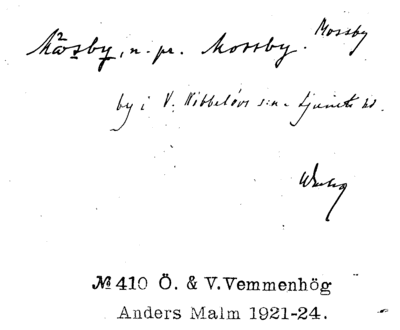 n. pr. Mossby. Mossby
by i V. Kibbelövs s:n Ljunits hd.
№ 410 Ö. & V. Vemmenhög
Anders Malm 1921-24.